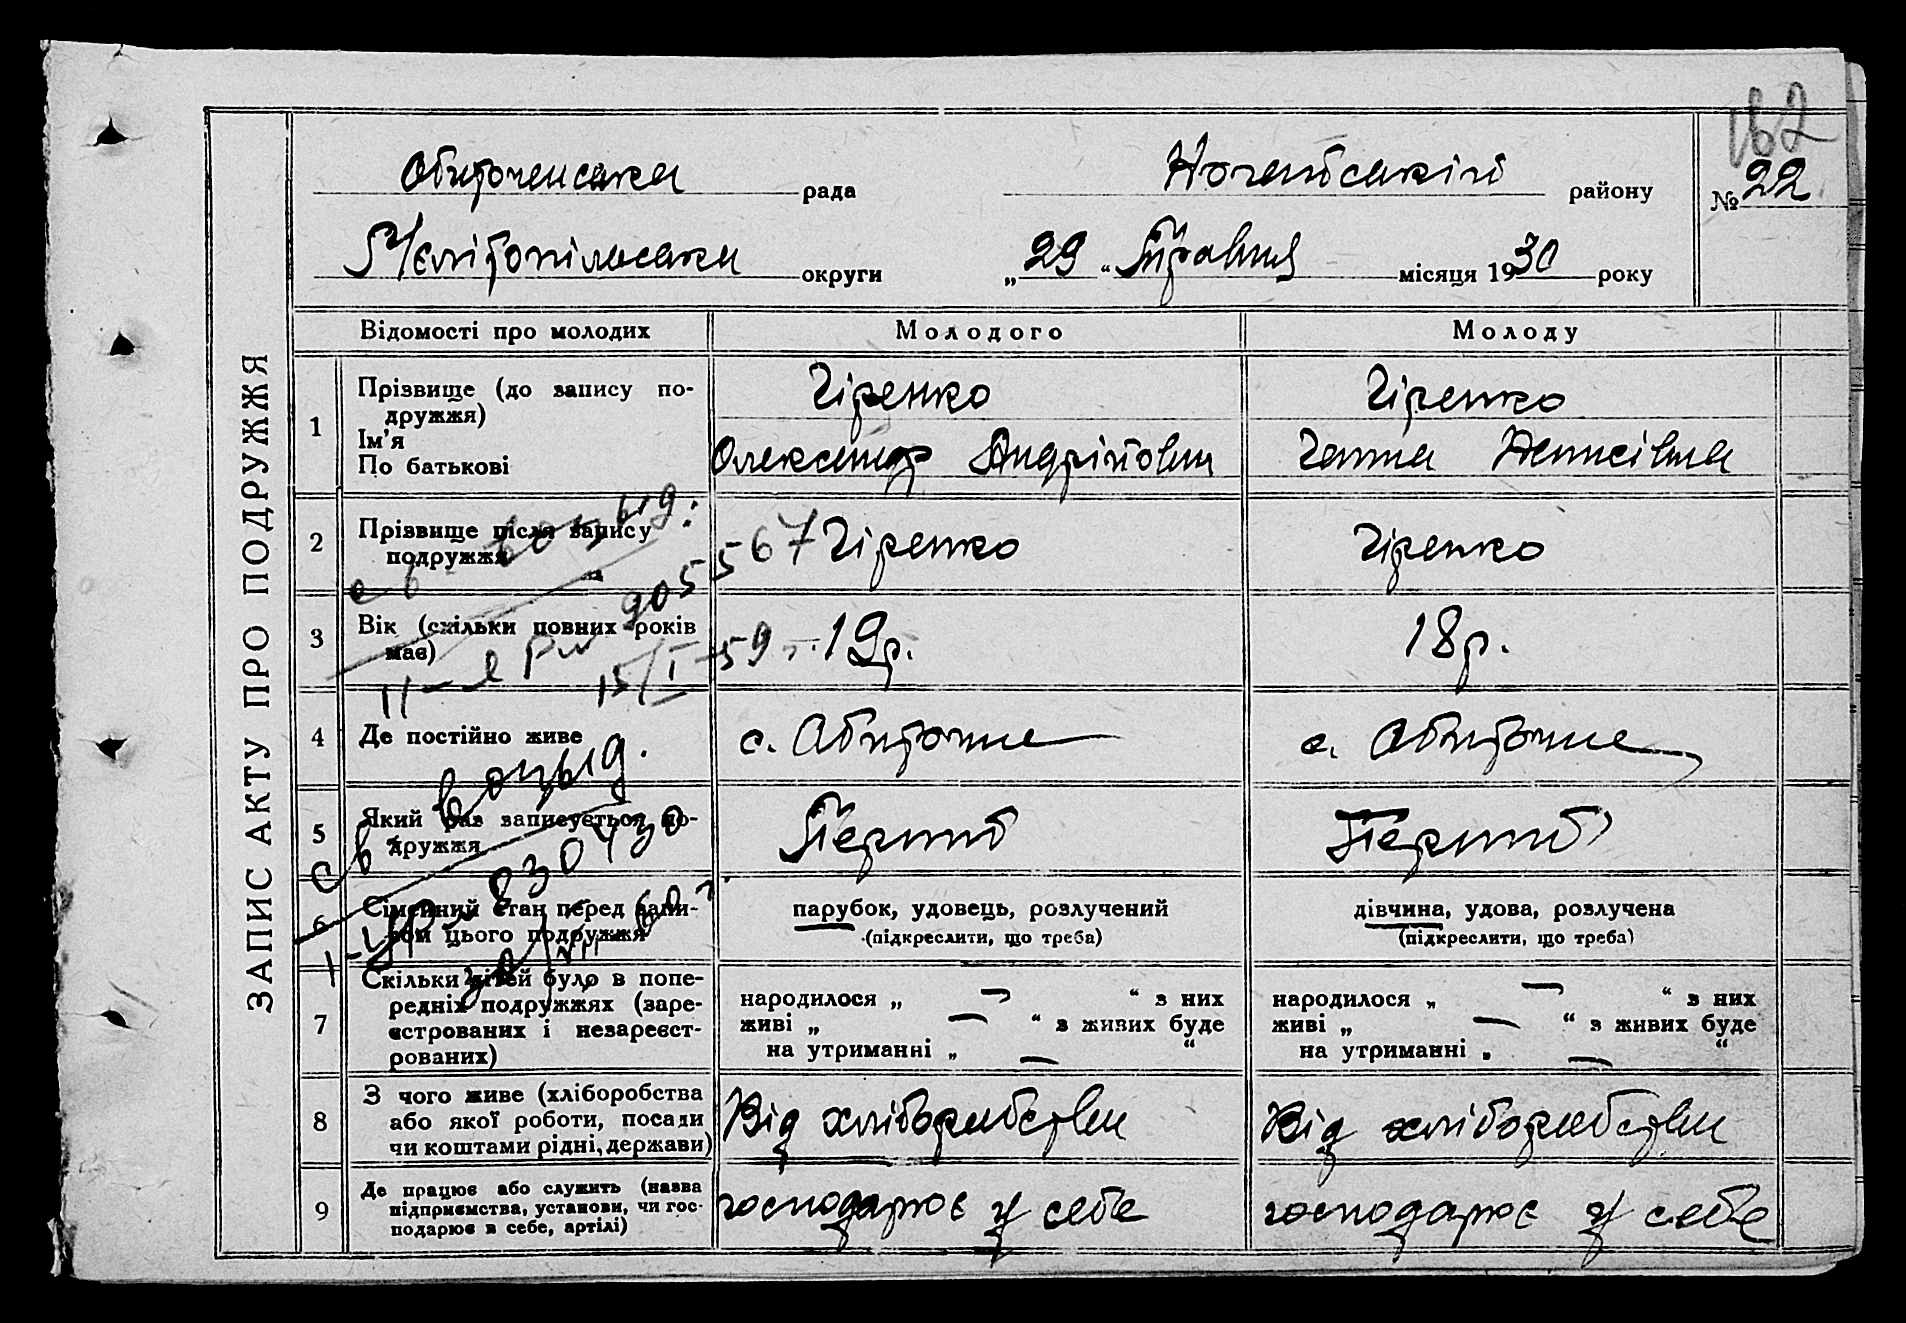 ЗАПИС АКТУ ПРО ПОДРУЖЖЯ
162
Обиточенська рада Ногайський району № 22
Мелітопільська округи „29“ Травня місяця 1930 року
Відомості про молодих Молодого Молоду
1 Прізвище (до запису по-
дружжя)
Ім'я
По батькові
Гіренко Гіренко
Олександр Андрійович Ганна Денисівна
2 Прізвище після запису
подружжя
Гіренко Гіренко
св. возвыд.
905567
3 Вік (скільки повних років
має)
19р. 18р.
15/I-59 г.
4 Де постійно живе с. Обиточне с. Обиточне
5 Який раз записується по-
дружжя
Перший Перший
св
830430
6 Сімейний стан перед запи-
сом цього подружжя
парубок, удовець, розлучений
(підкреслити, що треба)
дівчина, удова, розлучена
(підкреслити, що треба)
7 Скільки дітей було в попе-
редніх подружжях (заре-
єстрованих і незареєст-
рованих)
народилося „ — “ з них
живі „ — “ з живих буде
на утриманні „ — “
народилося „ — “ з них
живі „ — “ з живих буде
на утриманні „ — “
8 З чого живе (хліборобства
або якої роботи, посади
чи коштами рідні, держави)
Від хліборобства Від хліборобства
9 Де працює або служить (назва
підприємства, установи, чи гос-
подарює в себе, артілі)
господарює у себе господарює у себе